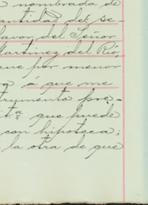 a nombrada de
cantidad del se-
favor del Señor
Martinez del Rio,
que por menor
á que me
trumento pre-
que puede
con hipoteca;
la otra de que